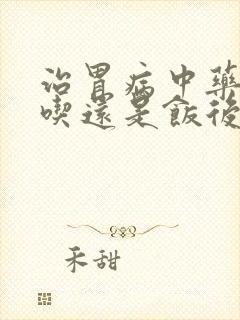 治胃病中藥
喫還是飯後
禾甜